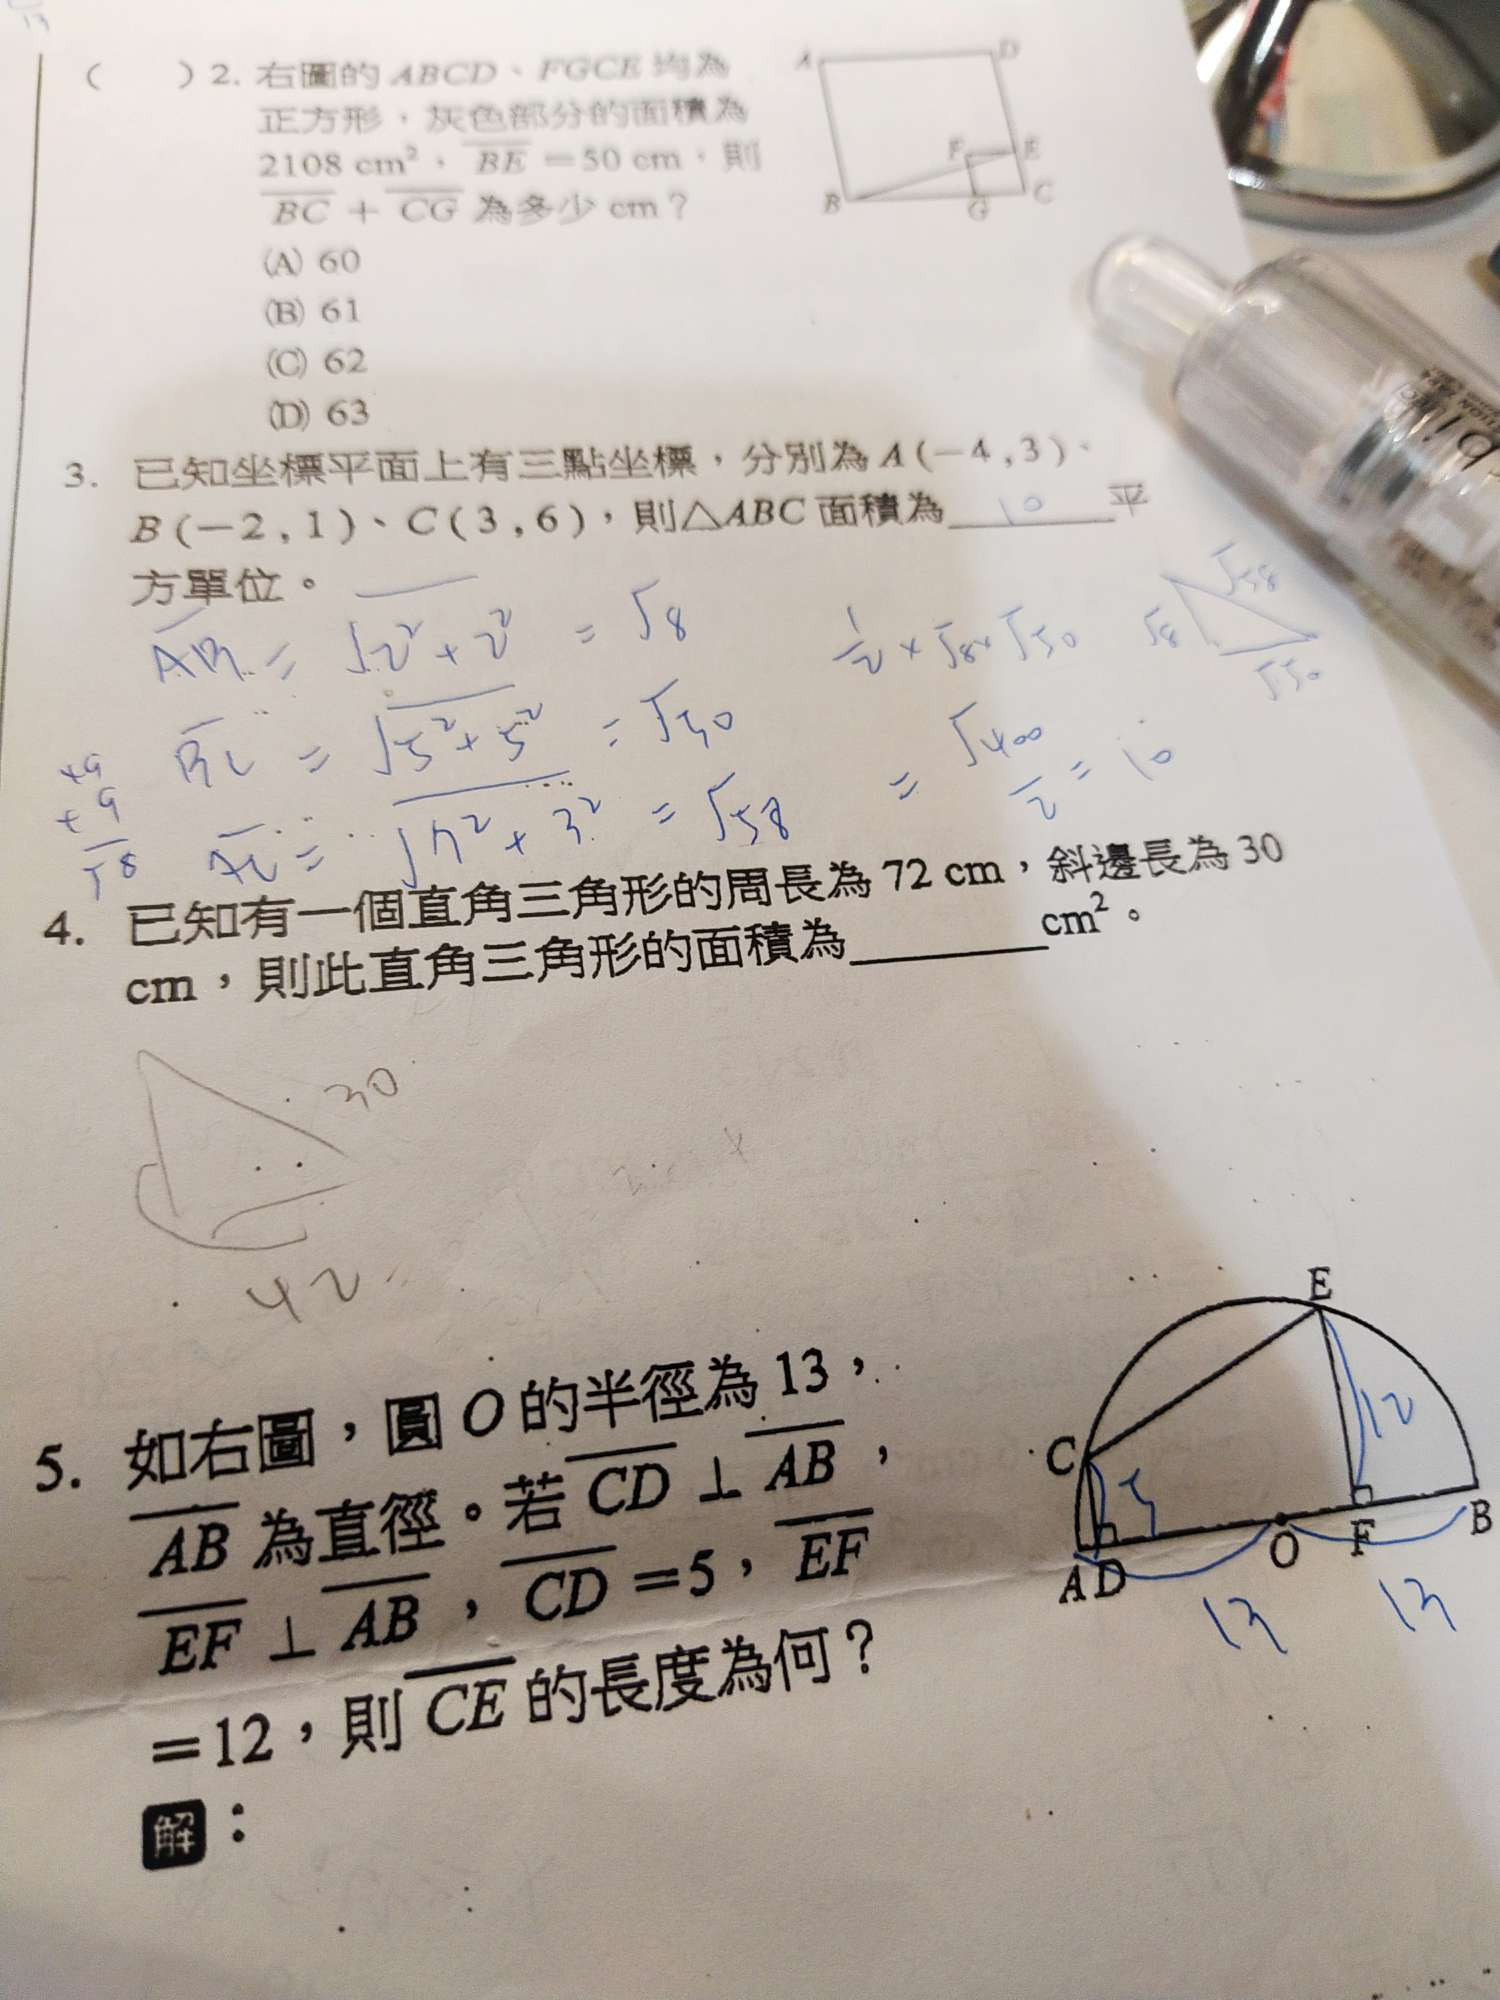 13
(　　) 2. 右圖的 ABCD、FGCE 均為
正方形，灰色部分的面積為
2108 cm²，BE＝50 cm，則
BC＋CG 為多少 cm？
(A) 60
(B) 61
(C) 62
(D) 63
A
D
F
E
B
G
C
3. 已知坐標平面上有三點坐標，分別為 A(－4,3)、
B(－2,1)、C(3,6)，則△ABC 面積為 10 平
方單位。
AB = √2²+2² = √8
BC = √5²+5² = √50
AC = √7²+3² = √58
49
+9
58
1/2 × √8 × √50
= √400/2 = 10
√8
√58
√50
4. 已知有一個直角三角形的周長為 72 cm，斜邊長為 30
cm，則此直角三角形的面積為 cm²。
30
42
5. 如右圖，圓 O 的半徑為 13，
AB 為直徑。若 CD⊥AB，
EF⊥AB，CD＝5，EF
＝12，則 CE 的長度為何？
解：
E
12
C
5
A D
O
F
B
13
13